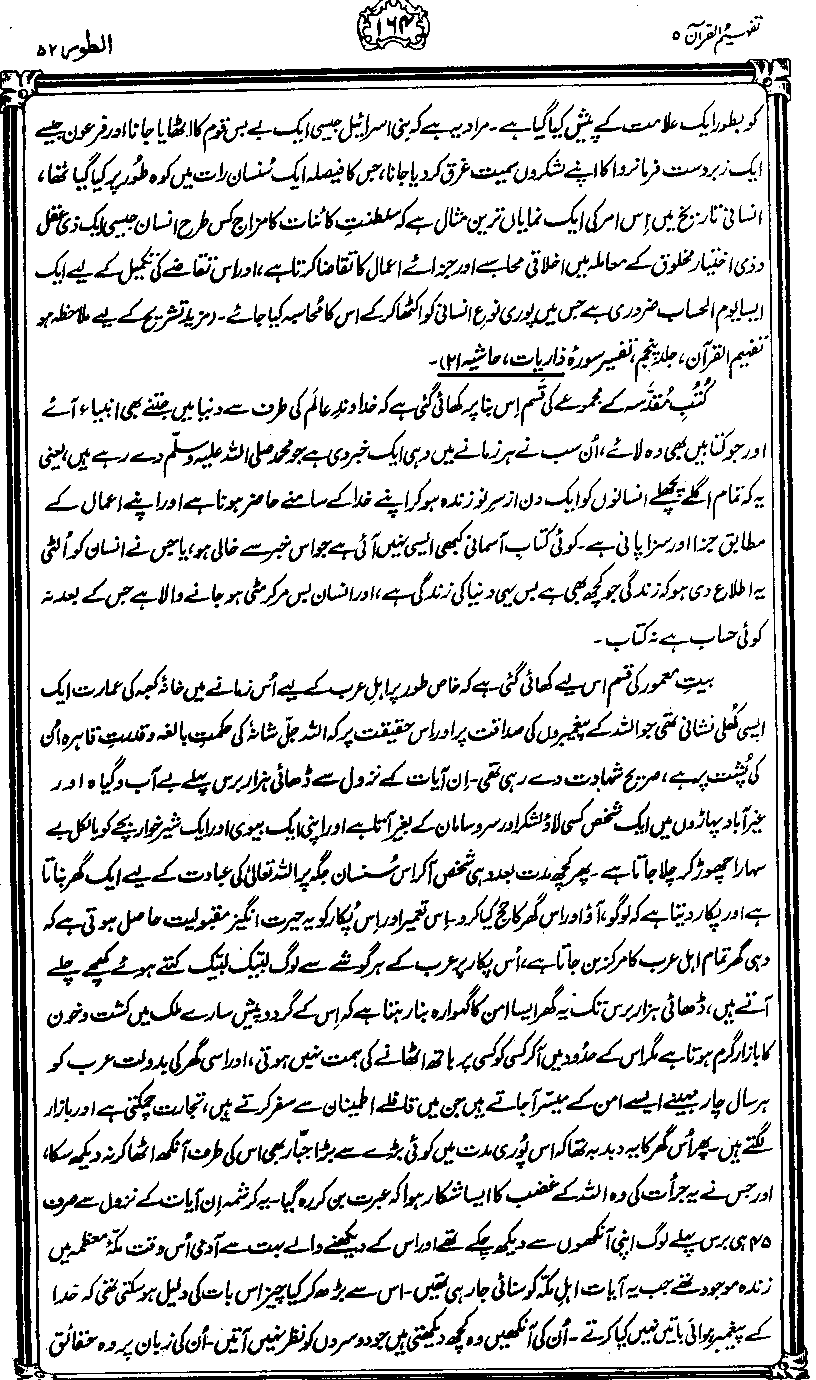 تفہیم القرآن ۵
۱۶۴
الطور ۵۲
کو بطور ایک علامت کے پیش کیا گیا ہے۔ مراد یہ ہے کہ بنی اسرائیل جیسی ایک بے بس قوم کا اٹھایا جانا اور فرعون جیسے
ایک زبردست فرمانروا کا اپنے لشکروں سمیت غرق کر دیا جانا، جس کا فیصلہ ایک سُنسان رات میں کوہ طُور پر کیا گیا تھا،
انسانی تاریخ میں اِس امر کی ایک نمایاں ترین مثال ہے کہ سلطنتِ کائنات کا مزاج کس طرح انسان جیسی ایک ذی عقل
و ذی اختیار مخلوق کے معاملہ میں اخلاقی محاسبے اور جزائے اعمال کا تقاضا کرتا ہے، اور اس تقاضے کی تکمیل کے لیے ایک
ایسا یوم الحساب ضروری ہے جس میں پوری نوعِ انسانی کو اکٹھا کر کے اس کا مُحاسبہ کیا جائے۔ (مزید تشریح کے لیے ملاحظہ ہو
تفہیم القرآن، جلد پنجم، تفسیر سورۂ ذاریات، حاشیہ ۲۱)۔
کُتُبِ مُقدّسہ کے مجموعے کی قَسم اِس بنا پر کھائی گئی ہے کہ خداوندِ عالَم کی طرف سے دنیا میں جتنے بھی انبیاء آئے
اور جو کتابیں بھی وہ لائے، اُن سب نے ہر زمانے میں وہی ایک خبر دی ہے جو محمد صلی اللہ علیہ وسلّم دے رہے ہیں، یعنی
یہ کہ تمام اگلے پچھلے انسانوں کو ایک دن از سرِ نو زندہ ہو کر اپنے خدا کے سامنے حاضر ہونا ہے اور اپنے اعمال کے
مطابق جزا اور سزا پانی ہے۔ کوئی کتابِ آسمانی کبھی ایسی نہیں آئی ہے جو اس خبر سے خالی ہو، یا جس نے انسان کو اُلٹی
یہ اطلاع دی ہو کہ زندگی جو کچھ بھی ہے بس یہی دنیا کی زندگی ہے، اور انسان بس مر کر مٹی ہو جانے والا ہے جس کے بعد نہ
کوئی حساب ہے نہ کتاب۔
بیتِ معمور کی قسم اس لیے کھائی گئی ہے کہ خاص طور پر اہلِ عرب کے لیے اُس زمانے میں خانۂ کعبہ کی عمارت ایک
ایسی کُھلی نشانی تھی جو اللہ کے پیغمبروں کی صداقت پر اور اس حقیقت پر کہ اللہ جلّ شانہٗ کی حکمتِ بالغہ و قدرتِ قاہرہ اُن
کی پُشت پر ہے، صریح شہادت دے رہی تھی۔ اِن آیات کے نزول سے ڈھائی ہزار برس پہلے بے آب و گیاہ اور
غیر آباد پہاڑوں میں ایک شخص کسی لاؤ لشکر اور سر و سامان کے بغیر آتا ہے اور اپنی ایک بیوی اور ایک شیر خوار بچے کو بالکل بے
سہارا چھوڑ کر چلا جاتا ہے۔ پھر کچھ مدت بعد وہی شخص آ کر اس سُنسان جگہ پر اللہ تعالیٰ کی عبادت کے لیے ایک گھر بناتا
ہے اور پکار دیتا ہے کہ لوگو، آؤ اور اس گھر کا حج کیا کرو۔ اِس تعمیر اور اِس پُکار کو یہ حیرت انگیز مقبولیت حاصل ہوتی ہے کہ
وہی گھر تمام اہلِ عرب کا مرکز بن جاتا ہے، اُس پکار پر عرب کے ہر گوشے سے لوگ لبّیک لبّیک کہتے ہوئے کھچے چلے
آتے ہیں، ڈھائی ہزار برس تک یہ گھر ایسا امن کا گہوارہ بنا رہتا ہے کہ اِس کے گرد و پیش سارے ملک میں کشت و خون
کا بازار گرم ہوتا ہے مگر اس کے حدُود میں آ کر کسی کو کسی پر ہاتھ اٹھانے کی ہمت نہیں ہوتی، اور اسی گھر کی بدولت عرب کو
ہر سال چار مہینے ایسے امن کے میسّر آ جاتے ہیں جن میں قافلے اطمینان سے سفر کرتے ہیں، تجارت چمکتی ہے اور بازار
لگتے ہیں۔ پھر اُس گھر کا یہ دبدبہ تھا کہ اس پُوری مدت میں کوئی بڑے سے بڑا جبّار بھی اس کی طرف آنکھ اٹھا کر نہ دیکھ سکا،
اور جس نے یہ جرأت کی وہ اللہ کے غضب کا ایسا شکار ہوا کہ عبرت بن کر رہ گیا۔ یہ کرشمہ اِن آیات کے نزول سے صرف
۴۵ ہی برس پہلے لوگ اپنی آنکھوں سے دیکھ چکے تھے اور اس کے دیکھنے والے بہت سے آدمی اُس وقت مکّۂ معظمہ میں
زندہ موجود تھے جب یہ آیات اہلِ مکّہ کو سنائی جا رہی تھیں۔ اس سے بڑھ کر کیا چیز اس بات کی دلیل ہو سکتی تھی کہ خدا
کے پیغمبر ہوائی باتیں نہیں کیا کرتے۔ اُن کی آنکھیں وہ کچھ دیکھتی ہیں جو دوسروں کو نظر نہیں آتیں۔ اُن کی زبان پر وہ حقائق